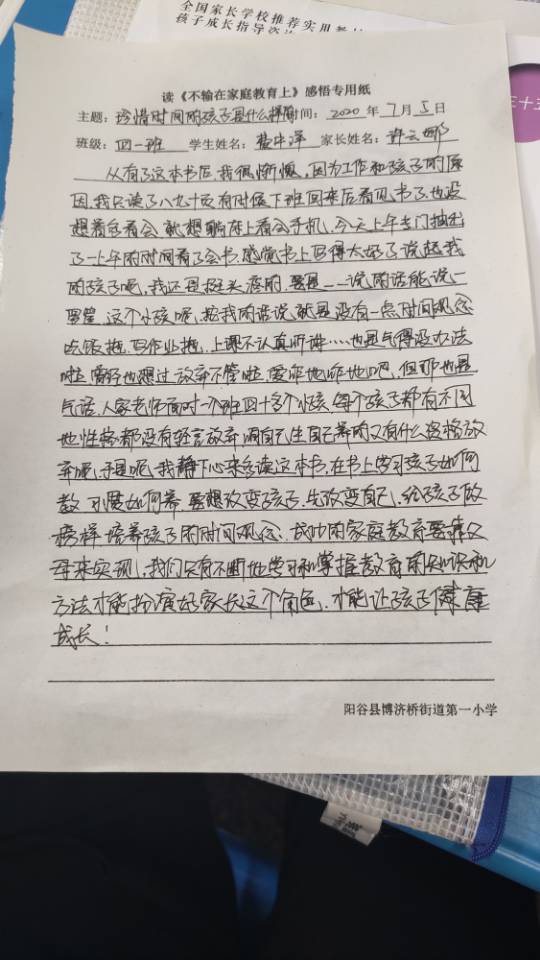 全国家长学校推荐实用教材
孩子成长指导咨
三十五
读《不输在家庭教育上》感悟专用纸
主题：珍惜时间的孩子是什么样的 时间：2020 年 7 月 5 日
班级：四一班 学生姓名： 家长姓名：
从有了这本书后，我很惭愧，因为工作和孩子的原
因，我只读了八九十页，有时候下班回来后看见书了，也没
想着多看会，就想躺床上看会手机，今天上午专门抽出
了一上午的时间看了会书，感觉书上写得太好了，说起我
的孩子呢，我还是挺头疼的，要是一一说的话能说一
箩筐，这个小孩呢，按我的话说就是没有一点时间观念
吃饭拖，写作业拖，上课不认真听讲……也是气得没办法
啦，曾经也想过放弃不管啦，爱咋地咋地吧，但那也是
气话，人家老师面对一个班四十多个小孩，每个孩子都有不同
地性格都没有轻言放弃，咱自己生自己养的又有什么资格放
弃呢，于是呢，我静下心来多读这本书，在书上学习孩子如何
教，习惯如何养，要想改变孩子，先改变自己，给孩子做
榜样，培养孩子的时间观念，成功的家庭教育要靠父
母来实现，我们只有不断地学习和掌握教育的知识和
方法才能扮演好家长这个角色，才能让孩子健康
成长！
阳谷县博济桥街道第一小学